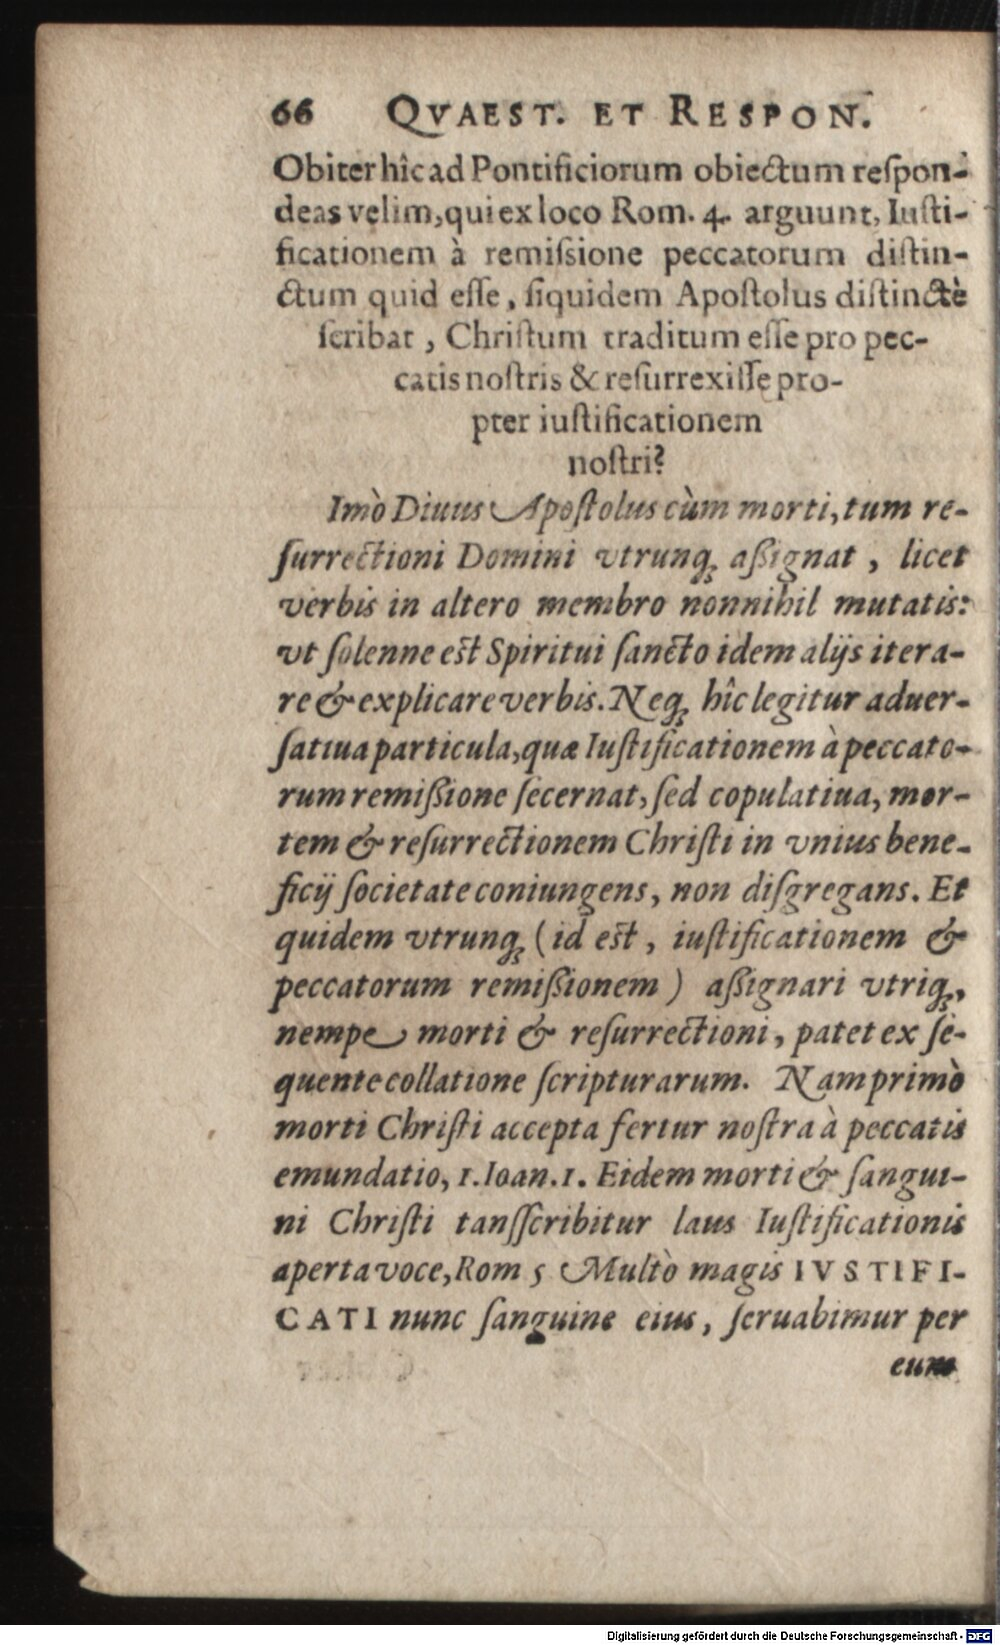 66 QVAEST. ET RESPON.
Obiter hîc ad Pontificiorum obiectum reſpon-
deas velim, qui ex loco Rom. 4. arguunt, Iuſti-
ficationem à remiſsione peccatorum diſtin-
ctum quid eſſe, ſiquidem Apoſtolus diſtinctè
ſcribat, Chriſtum traditum eſſe pro pec-
catis noſtris & reſurrexiſſe pro-
pter iuſtificationem
noſtri?
Imò Diuus Apoſtolus cùm morti, tum re-
ſurrectioni Domini vtrunq; aßignat, licet
verbis in altero membro nonnihil mutatis:
vt ſolenne eſt Spiritui ſancto idem alijs itera-
re & explicare verbis. Neq; hîc legitur aduer-
ſatiua particula, quæ Iuſtificationem à peccato-
rum remißione ſecernat, ſed copulatiua, mor-
tem & reſurrectionem Chriſti in vnius bene-
ficij ſocietate coniungens, non diſgregans. Et
quidem vtrunq; (id eſt, iuſtificationem &
peccatorum remißionem) aßignari vtriq;,
nempe morti & reſurrectioni, patet ex ſe-
quente collatione ſcripturarum. Nam primò
morti Chriſti accepta fertur noſtra à peccatis
emundatio, 1. Ioan. 1. Eidem morti & ſangui-
ni Chriſti tanſſcribitur laus Iuſtificationis
aperta voce, Rom 5 Multò magis IVSTIFI-
CATI nunc ſanguine eius, ſeruabimur per
eum
Digitalisierung gefördert durch die Deutsche Forschungsgemeinschaft - DFG